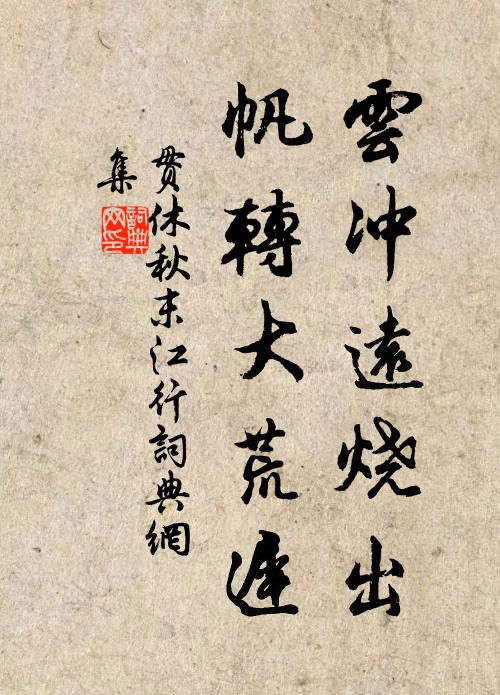 雲冲遠烧出
帆轉大荒遅
貫休秋末江行詞典網
集
詞典
网印